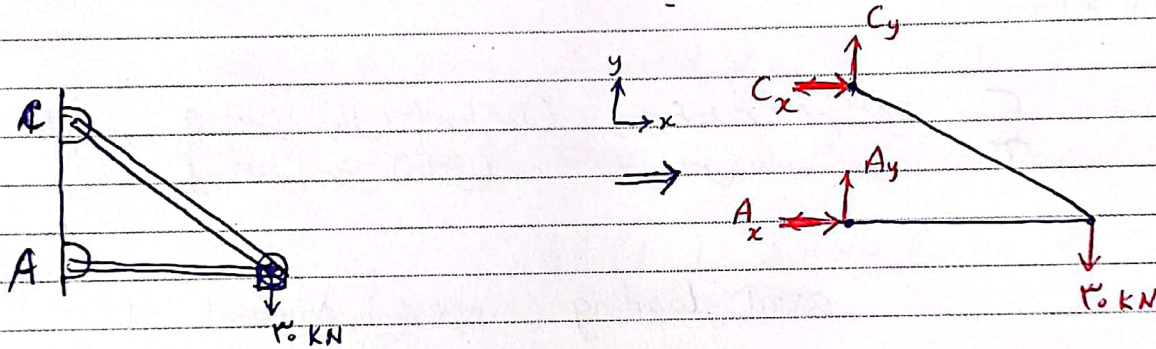 C
A
۳۰ KN
y
x
⇒
Cy
Cx
Ay
Ax
۳۰ KN